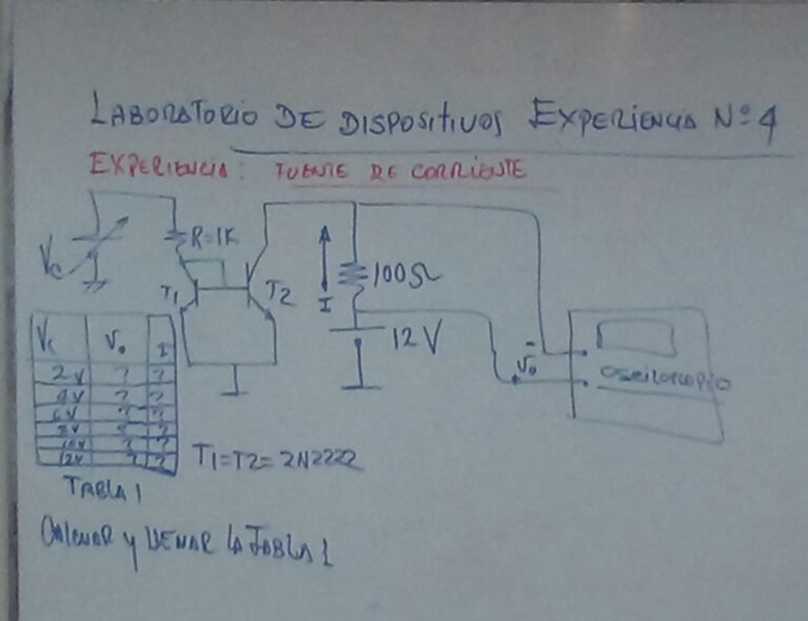 LABORATORIO DE DISPOSITIVOS EXPERIENCIA Nº 4
EXPERIENCIA: FUENTE DE CORRIENTE
Vc
R=1K
T1
T2
I
100Ω
12V
Vo
-
+
OSCILOSCOPIO
Vc Vo I
2V ? ?
4V ? ?
6V ? ?
8V ? ?
10V ? ?
12V ? ?
T1=T2= 2N2222
TABLA 1
y LLENAR LA TABLA 1